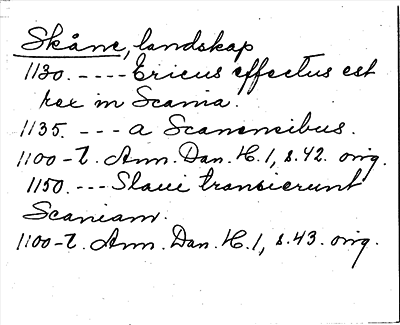 Skåne, landskap
1130. ---- Ericus effectus est
rex in Scania.
1135. --- a Scaniensibus.
1100-t. Ann. Dan. H. 1, s. 42. orig.
1150. --- Slaui transierunt
Scaniam.
1100-t. Ann. Dan. H. 1, s. 43. orig.